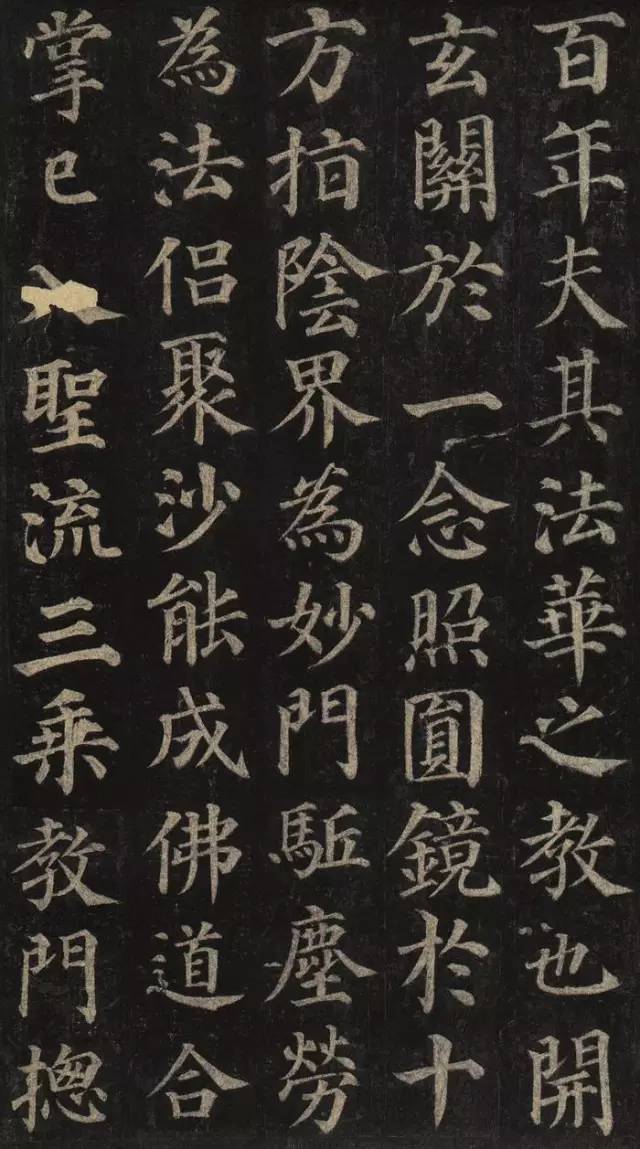 百年夫其法華之教也開
玄關於一念照圓鏡於十
方指陰界為妙門駈塵勞
為法侶聚沙能成佛道合
掌已入聖流三乗教門揔